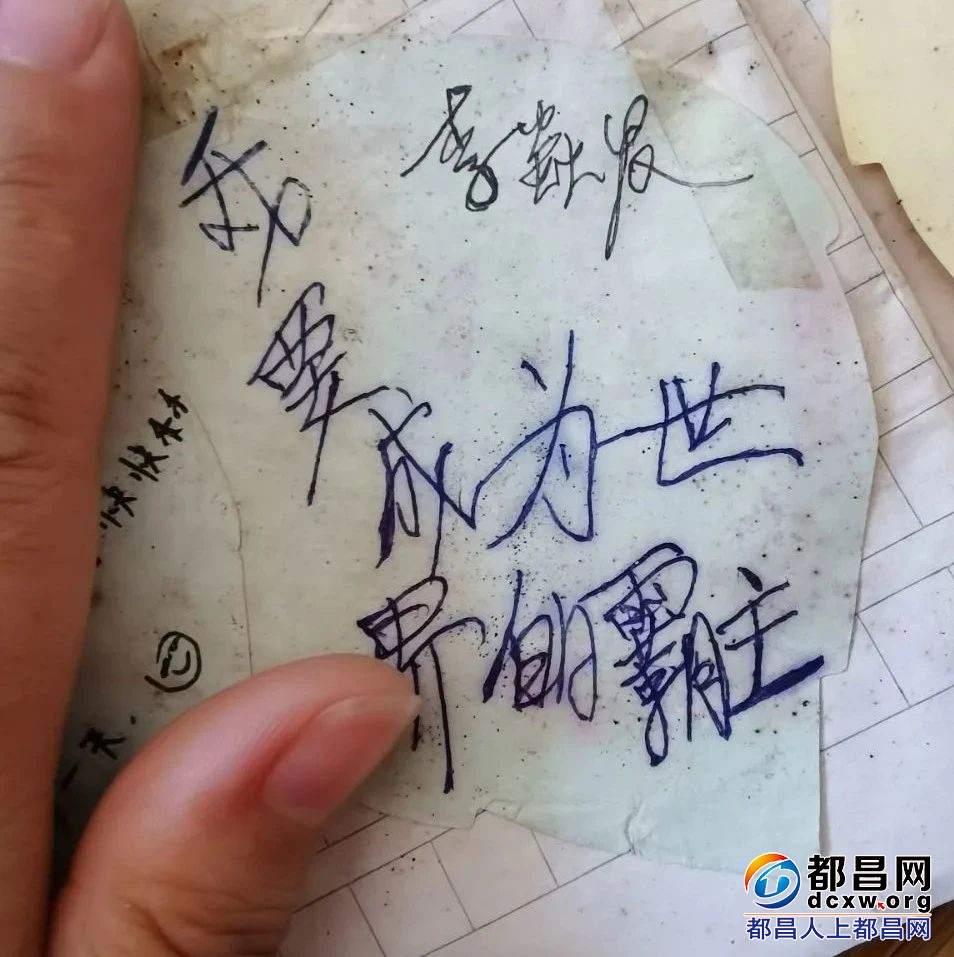 李
我
要
成为世
界的霸主
快快
一天.
都昌网
dcxw.org
都昌人上都昌网